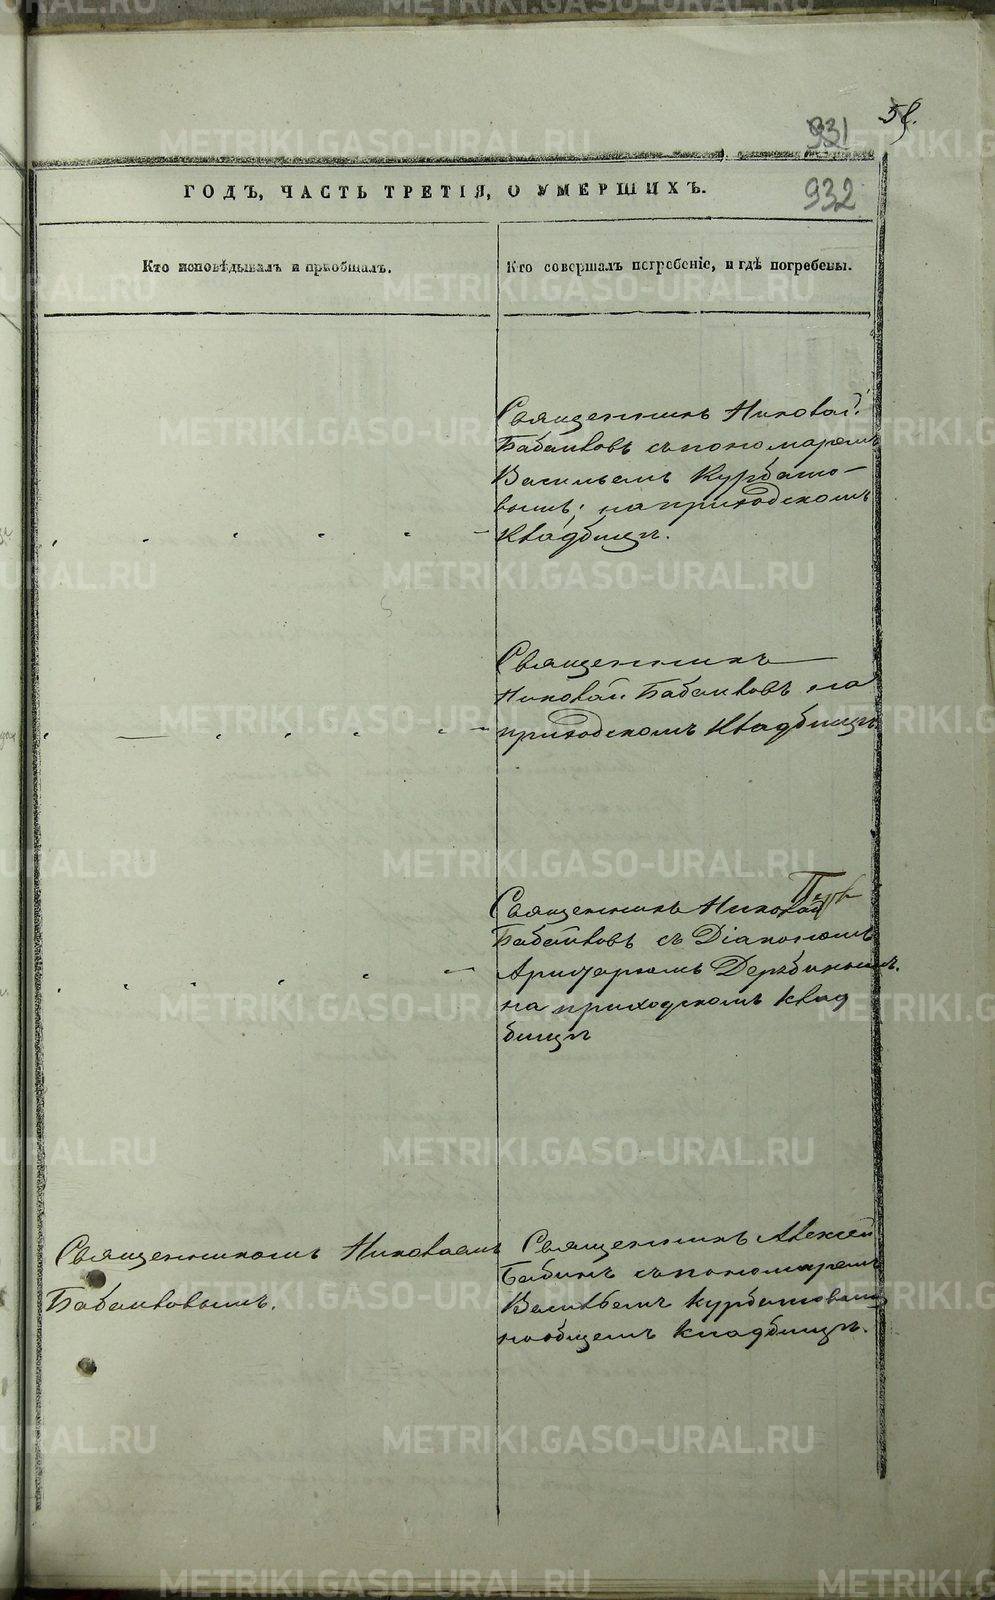 58.
931
ГОДЪ, ЧАСТЬ ТРЕТІЯ, О УМЕРШИХЪ.
932
Кто исповѣдывалъ и пріобщалъ.
Кто совершалъ погребеніе, и гдѣ погребены.
Священникъ Николай
Бабаиловъ съ пономаремъ
Васильемъ Курбато-
вымъ; на приходскомъ
кладбищѣ.
Священникъ
Николай Бабаиловъ на
приходскомъ кладбищѣ
Священникъ Николай
Бабаиловъ съ Діакономъ
Дерябинымъ.
на приходскомъ клад
бищѣ
Священникомъ Николаемъ
Бабаиловымъ.
Священникъ Алексѣй
Бабинъ съ пономаремъ
Васильемъ Курбатовымъ
на общемъ кладбищѣ.
METRIKI.GASO-URAL.RU